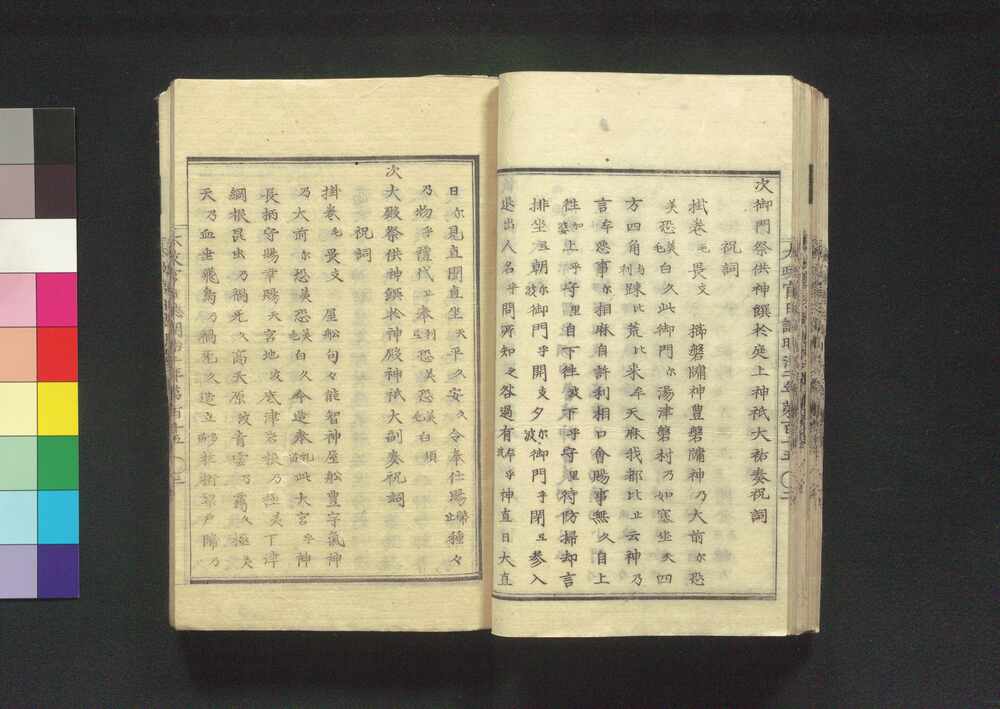 次御門祭供神饌於庭上神祇大祐奏祝詞
祝詞
掛巻毛畏支 櫛磐牖神豊磐牖神乃大前尓恐
美恐美毛白久此御門尓湯津磐村乃如塞坐天四
方四角与利疎比荒比来牟天麻我都比止云神乃
言牟悪事尓相麻自許利相口會賜事無久自上
往加婆上乎守里自下往波下乎守里待防掃却言
排坐且朝尓波御門乎開支夕尓波御門乎閉且参入
退出人名乎問所知之咎過有牟乎波神直日大直
日尓見直聞直坐天平久安久令奉仕賜幣止種々
乃物乎禮代止奉利且恐美恐美毛白須
次大殿祭供神饌於神殿神祇大副奏祝詞
祝詞
掛巻毛畏支 屋船句々能智神屋船豊宇氣神
乃大前尓恐美恐美毛白久今造奉礼留此大宮乎神
長柄守賜幸賜天宮地波底津岩根乃極美下津
綱根昆虫乃禍死久高天原波青雲乃靄久極美
天乃血垂飛鳥乃禍死久造立多留柱桁梁戸牖乃